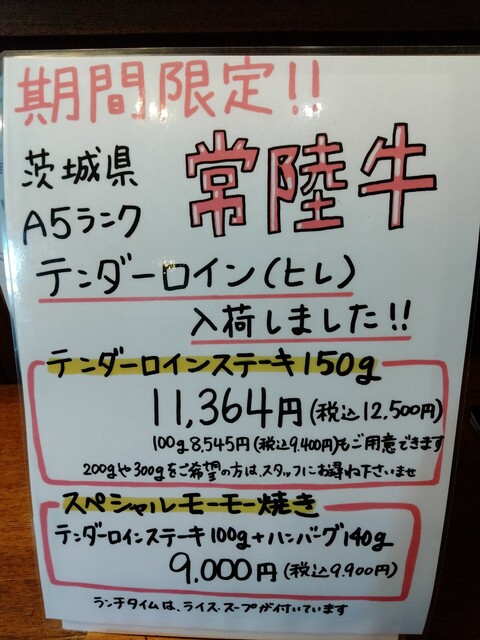 期間限定!!
茨城県
A5ランク
常陸牛
テンダーロイン(ヒレ)
入荷しました!!
テンダーロインステーキ150g
11,364円(税込12.500円)
100g8,545円(税込9.400円)もご用意できます
200gや300gをご希望の方は、スタッフにお尋ね下さいませ
スペシャルモーモー焼き
テンダーロインステーキ100g+ハンバーグ140g
9,000円(税込9.900円)
ランチタイムは、ライス・スープが付いています